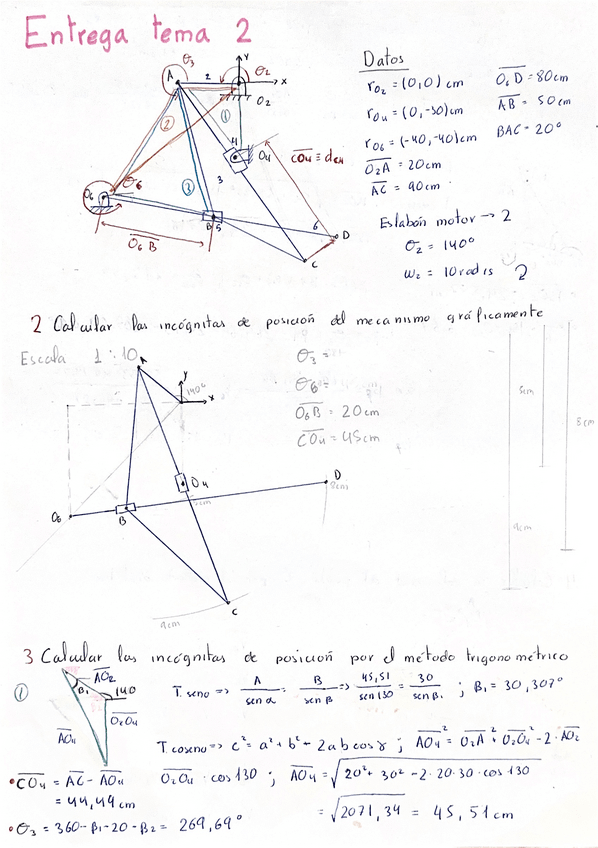 Entrega tema 2
Datos
r₀₂ = (0,0) cm
r₀₄ = (0,-30) cm
r₀₆ = (-40,-40) cm
O₂A = 20cm
AC = 90cm
O₆D = 80cm
AB = 50cm
BAC = 20°
Eslabón motor → 2
θ₂ = 140°
ω₂ = 10 rad/s
2
θ₃
A
2
Y
θ₂
X
O₂
1
2
3
4
O₄
CO₄ ≡ d
3
O₆
θ₆
B
5
6
D
C
O₆B
2 Calcular las incógnitas de posición del mecanismo gráficamente
Escala 1:10
θ₃ =
θ₆ =
O₆B = 20cm
CO₄ = 45cm
5cm
8cm
9cm
A
Y
140°
X
O₄
D
8cm
O₆
B
C
9cm
3 Calcular las incógnitas de posición por el método trigonométrico
1
AO₂
β₁
140
O₂O₄
AO₄
T. seno => A/sen α = B/sen β => 45,51/sen130 = 30/sen β₁ ; β₁ = 30,307°
T. coseno => c² = a² + b² - 2ab cos γ ; AO₄² = O₂A² + O₂O₄² - 2·AO₂
O₂O₄ · cos 130 ; AO₄ = √20² + 30² - 2·20·30·cos 130
= √2071,34 = 45,51cm
• CO₄ = AC - AO₄
= 44,49cm
• θ₃ = 360 - β₁ - 20 - β₂ = 269,69°